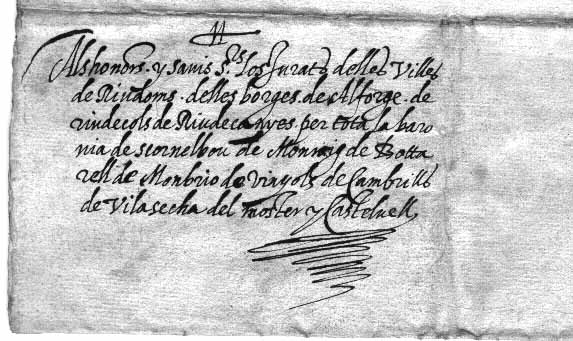 Als honors. y savis s.rs los Jurats de les Viles
de Riudoms. de les borges. de Alforge. de
riudecols de Riudecanyes. per tota la baro
nia de scornelbou de Monroig de Botta
rell de Monbrio de vinyols de Cambrills
de Vilasecha del Moster y Castelvell